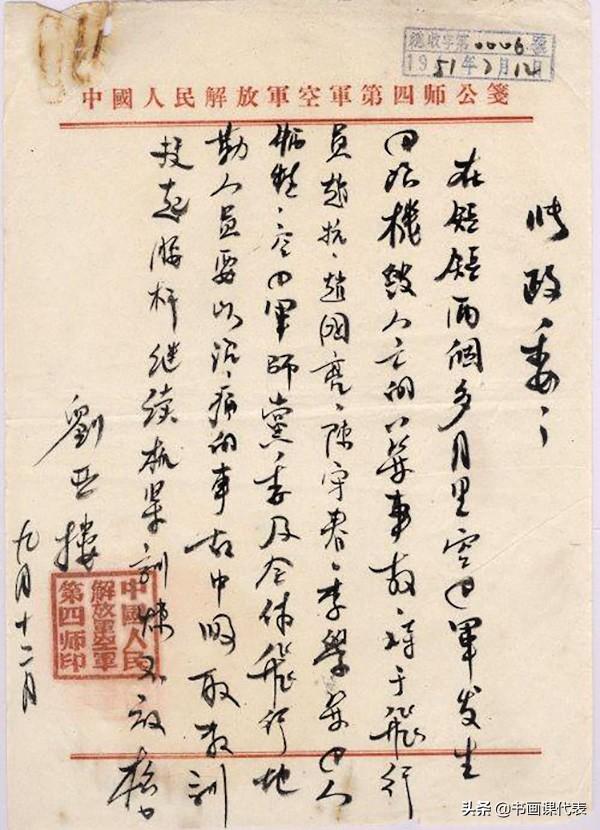 總收字第0006號
1951年 月12日
中國人民解放軍空軍第四师公箋
政委：
在短短両個多月里空四軍发生
四 機毁人亡的 等事故，对于飛行
員趙抗、趙國亮、陳守春、李學 四人
牺牲，空四軍師黨委及全体飛行地
勤人員要以沉痛的事故中吸取教訓
起腰杆继续抓紧訓煉不放松
劉亞樓
九月十二日
中國人民
解放軍空軍
第四师印
头条 @书画课代表